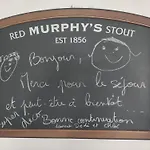 RED MURPHY'S STOUT
EST 1856
Bonjour,
Merci pour le séjour
et peut-être à bientôt...
super déco
Bonne continuation